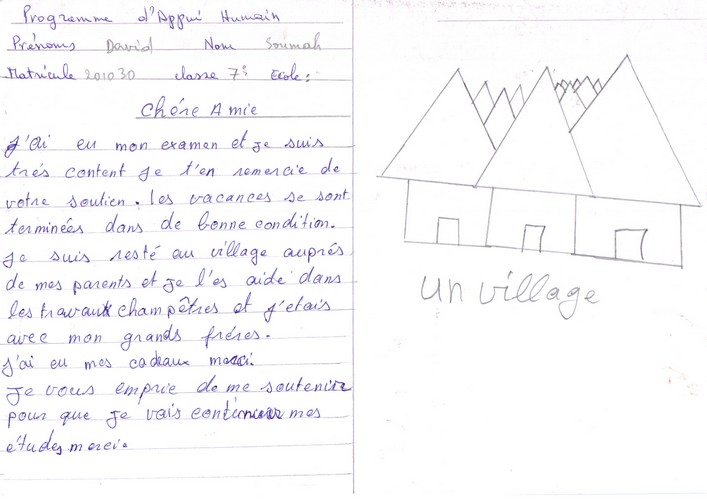 Programme d'Appui Humain
Prénoms David Nom Soumah
Matricule 201030 classe 7è Ecole:
Chére Amie
J'ai eu mon examen et je suis
trés content je t'en remercie de
votre soutien. les vacances se sont
terminées dans de bonne condition.
Je suis resté au village auprés
de mes parents et je l'es aidé dans
les travaux champêtres et j'etais
avec mon grands fréres.
J'ai eu mes cadeaux merci.
Je vous emprie de me soutenir
pour que je vais continuer mes
études merci.
un village